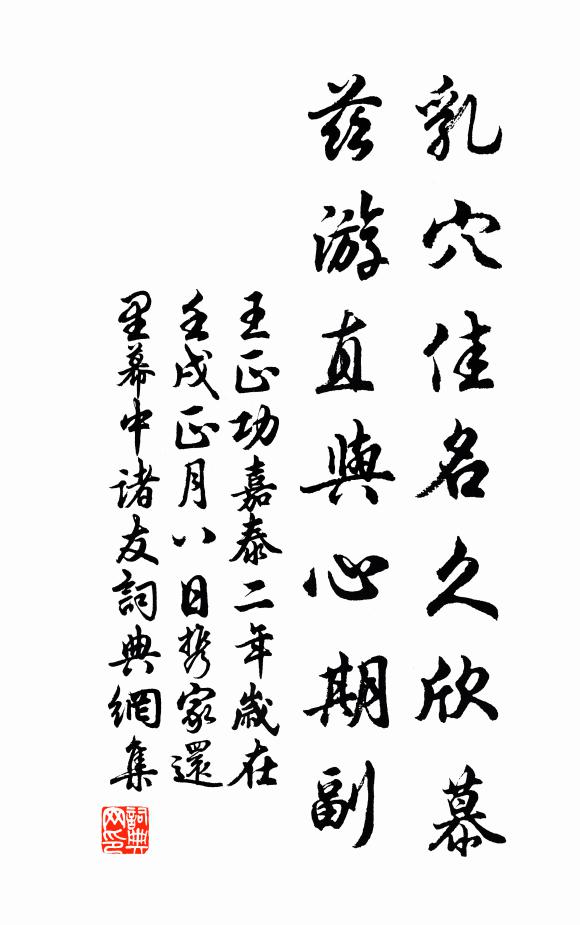 乳穴佳名久欣慕
茲游直與心期副
王正功嘉泰二年歲在
壬戌正月八日携家還
里幕中諸友詞典網集
詞典网印